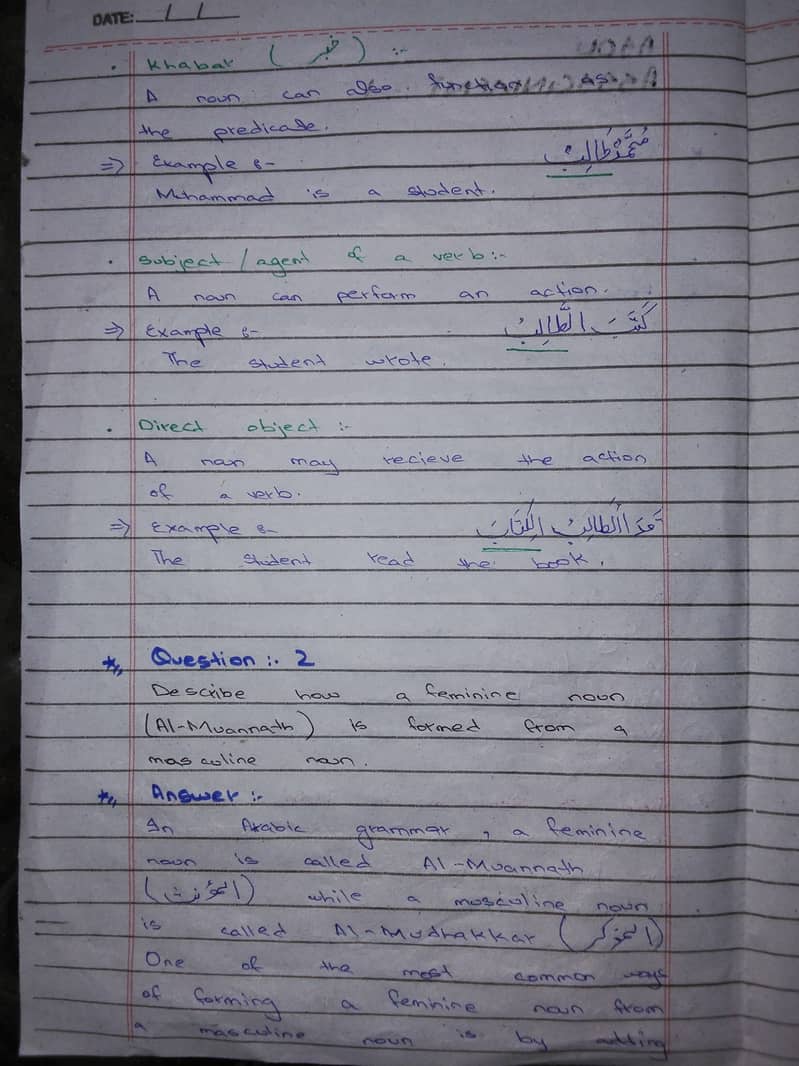 DATE: / /
• Khabar (خبر) :-
A noun can also function as
the predicate.
⇒ Example :- مُحَمَّدٌ طَالِبٌ
Mohammad is a student.
• Subject / agent of a verb:-
A noun can perform an action.
⇒ Example :- كَتَبَ الطَّالِبُ
The student wrote.
• Direct object :-
A noun may recieve the action
of a verb.
⇒ Example :- الطَالِبُ الكِتَابَ
The student read the book.
Question :- 2
Describe how a feminine noun
(Al-Muannath) is formed from a
masculine noun.
Answer :-
In Arabic grammar, a feminine
noun is called Al-Muannath
(المؤنث) while a masculine noun
is called Al-Mudhakkar (المذكر)
One of the most common ways
of forming a feminine noun from
a masculine noun is by adding